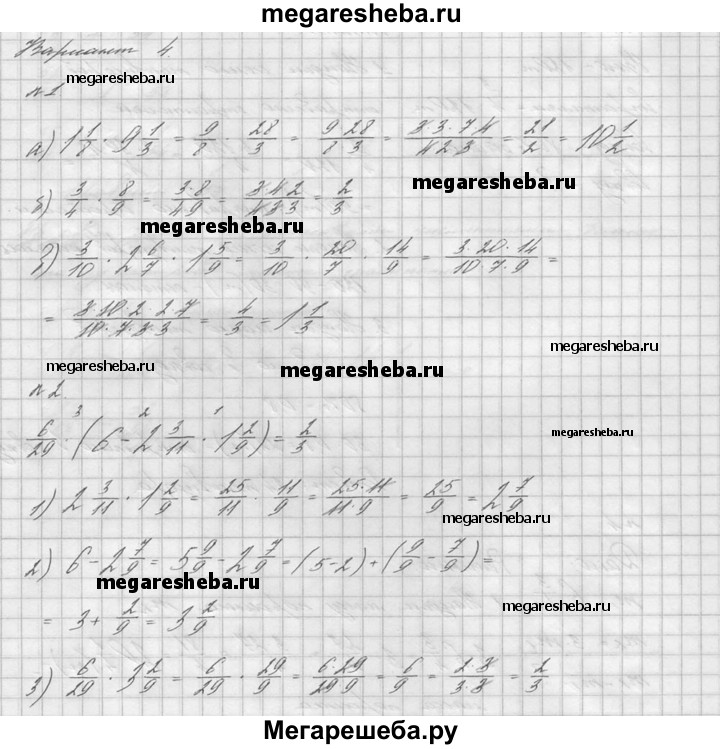 megaresheba.ru
Вариант 4.
megaresheba.ru
№1
а) 1 1/8 · 9 1/3 = 9/8 · 28/3 = 9·28/8·3 = 3·3·7·4/4·2·3 = 21/2 = 10 1/2
megaresheba.ru
б) 3/4 · 8/9 = 3·8/4·9 = 3·4·2/4·3·3 = 2/3
megaresheba.ru
в) 3/10 · 2 6/7 · 1 5/9 = 3/10 · 20/7 · 14/9 = 3·20·14/10·7·9 =
= 3·10·2·2·7/10·7·3·3 = 4/3 = 1 1/3
megaresheba.ru
megaresheba.ru
megaresheba.ru
№2
3 2 1
6/29 · (6 - 2 3/11 · 1 2/9) = 2/3
megaresheba.ru
1) 2 3/11 · 1 2/9 = 25/11 · 11/9 = 25·11/11·9 = 25/9 = 2 7/9
megaresheba.ru
2) 6 - 2 7/9 = 5 9/9 - 2 7/9 = (5-2) + (9/9 - 7/9) =
megaresheba.ru
= 3 + 2/9 = 3 2/9
megaresheba.ru
3) 6/29 · 3 2/9 = 6/29 · 29/9 = 6·29/29·9 = 6/9 = 2·3/3·3 = 2/3
Мегарешеба.ру